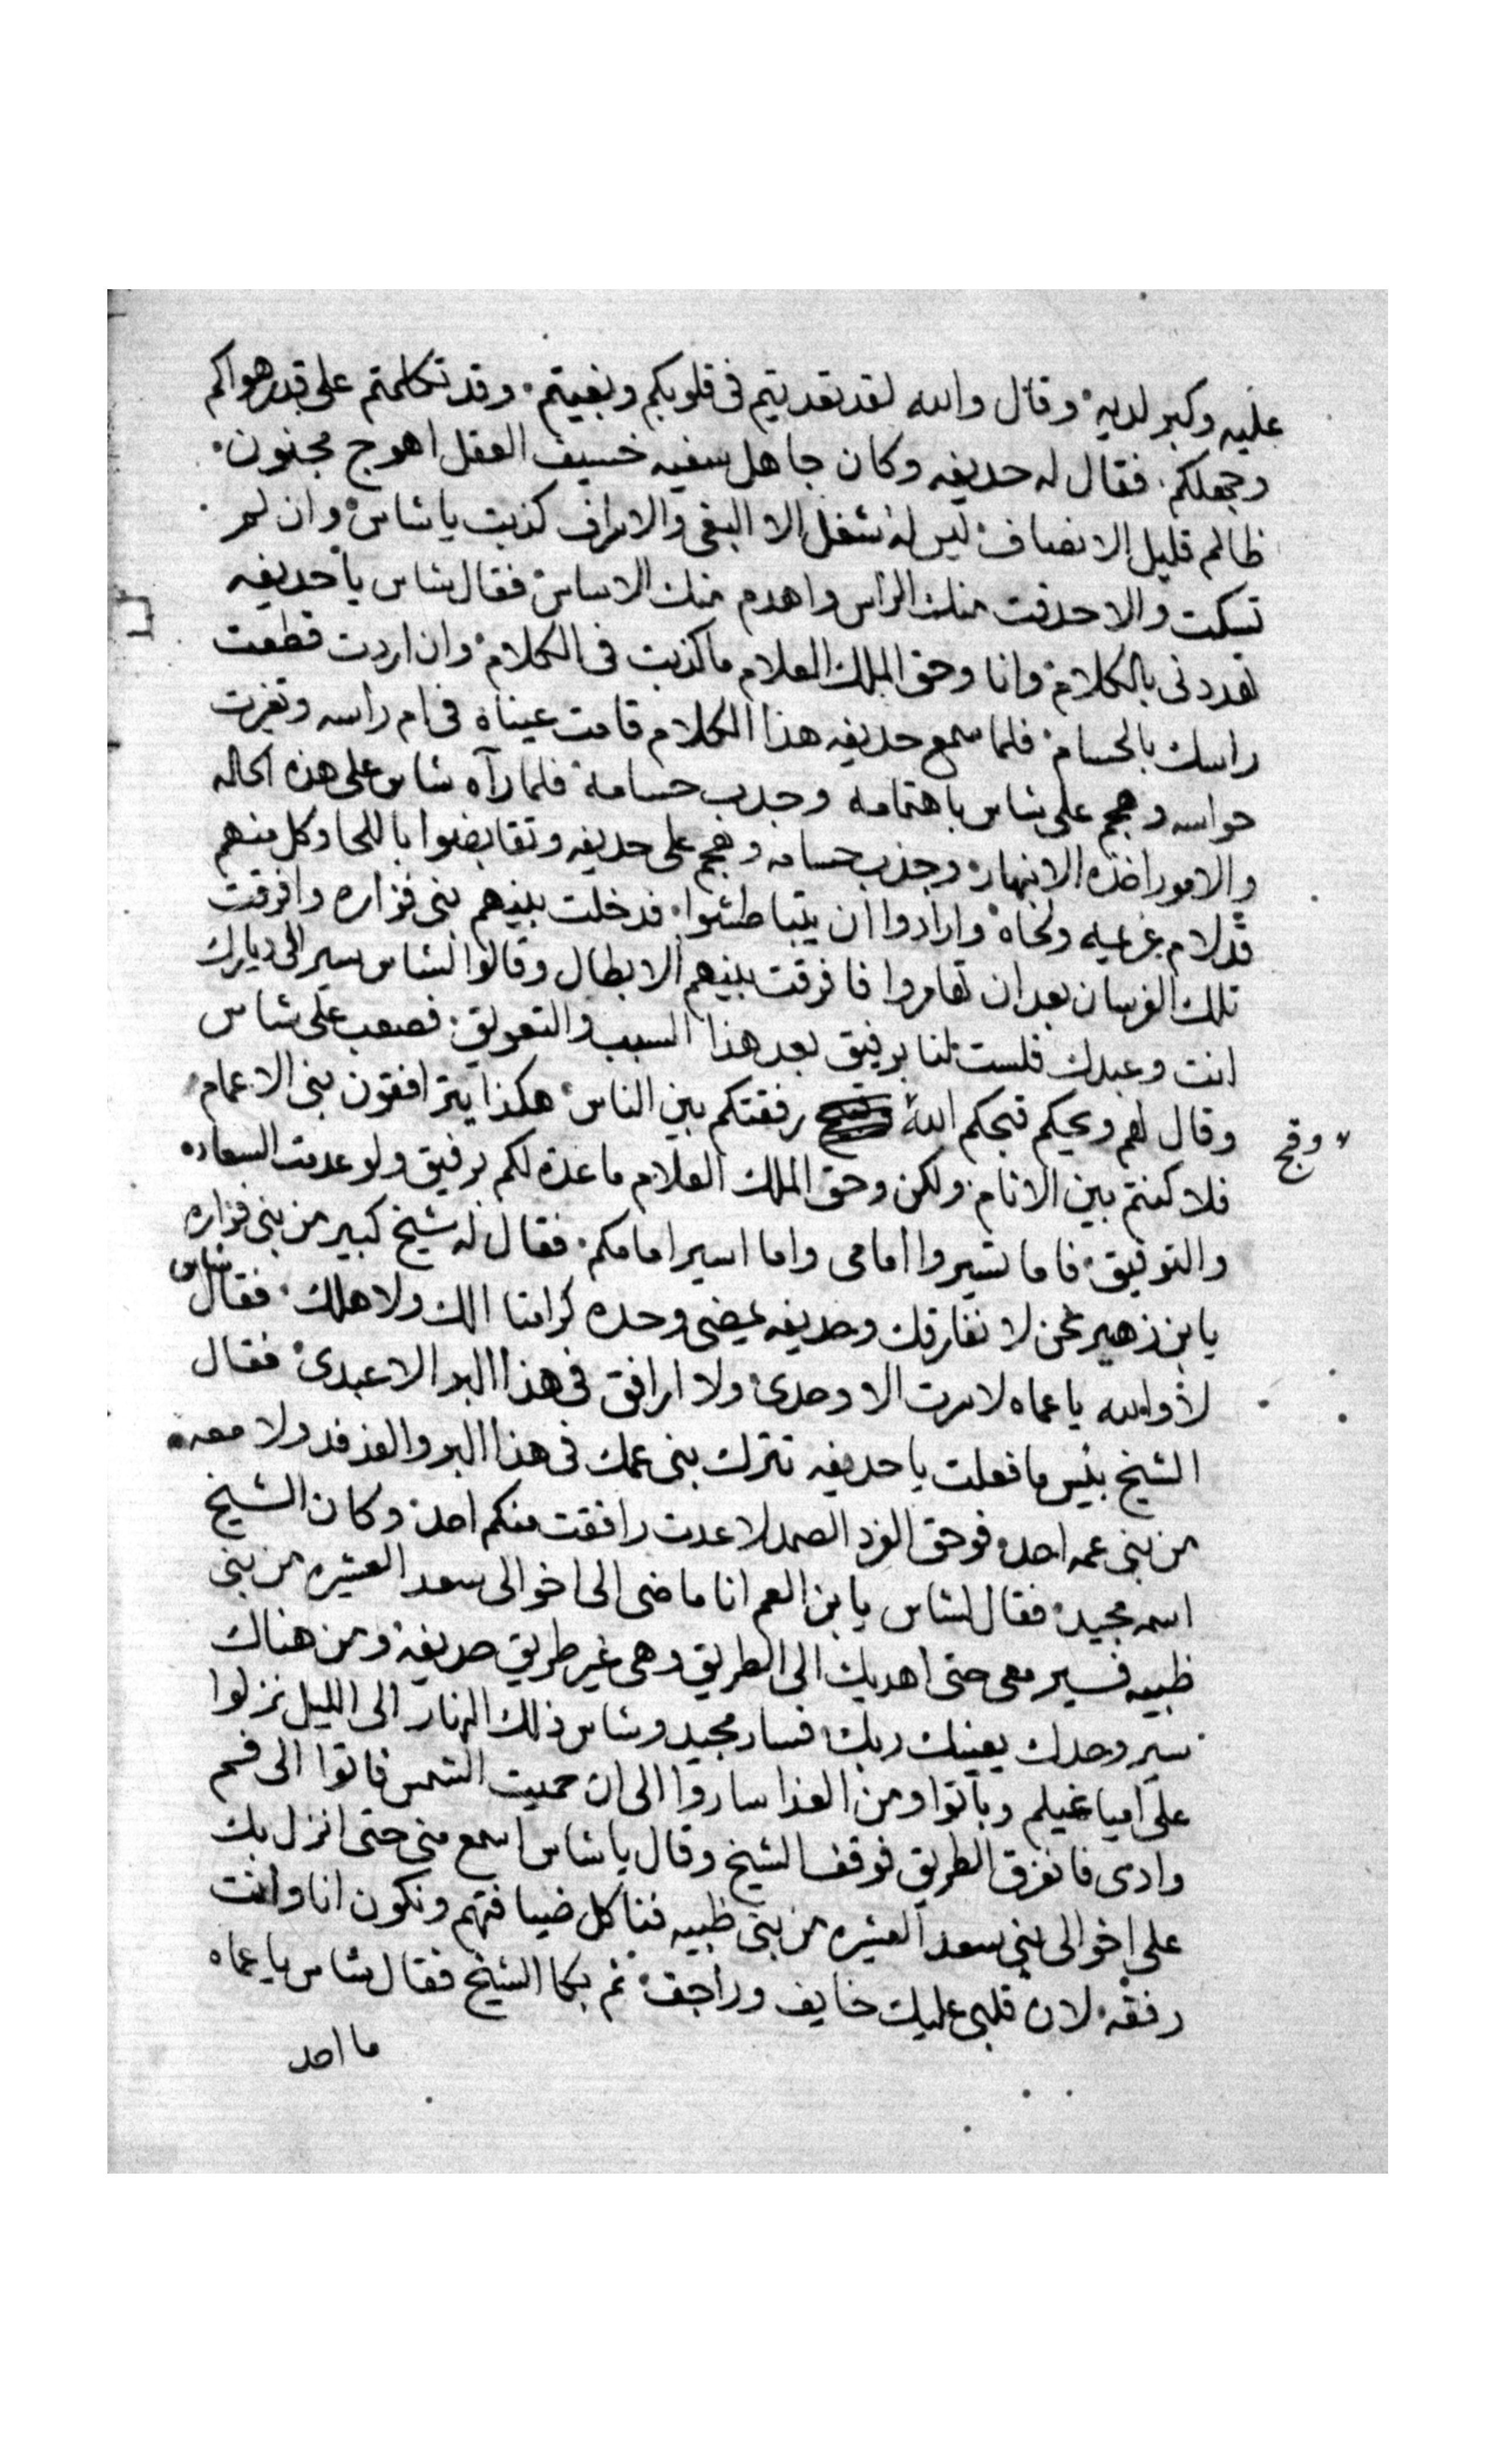 عليه وكبر لديه وقال والله لقد تعديتم في قلوبكم وبغيتم وقد تكلمتم على قدر هواكم
وجهلكم فقال له حديفه وكان جاهل سفيه خسيف العقل اهوج مجنون
ظالم قليل الانصاف ليس له شغل الا البغي والاسراف كذبت يا شاس وان لم
تسكت والا حذفت منك الراس واهدم منك الاساس فقال شاس يا حديفه
تهددني بالكلام وانا وحق الملك العلام ما كذبت في الكلام وان اردت قطعت
راسك بالحسام فلما سمع حديفه هذا الكلام قامت عيناه في ام راسه وتغيرت
حواسه وهجم على شاس باهتمامه وجذب حسامه فلما رآه شاس على هذه الحاله
والامور اخذه الانبهار وجذب حسامه وهجم على حديفه وتقابضوا باللحا وكل منهم
قد لام غريمه ولحاه وارادوا ان يتباطشوا فدخلت بينهم بني فزاره وافرقت
تلك الفرسان بعد ان تهامروا فافرقت بينهم الابطال وقالوا لشاس سير الى ديارك
انت وعبدك فلست لنا برفيق بعد هذا السبب والتعويق فصعب على شاس
وقال لهم ويحكم قبحكم الله وقبح رفقتكم بين الناس هكذا يترافقون بني الاعمام
فلا كنتم بين الانام ولكن وحق الملك العلام ما عدة لكم برفيق ولو عدمت السعاده
والتوفيق فاما تسيروا امامي واما اسير امامكم فقال له شيخ كبير من بني فزاره
يا بن زهير نحن لا نفارقك وحديفه يمضي وحده كرامتا الك ولاهلك فقال شاس
لا والله يا عماه لا سرت الا وحدي ولا ارافق في هذا البر الا عبدي فقال
الشيخ بئيس ما فعلت يا حديفه تترك بني عمك في هذا البر والفدفد ولا معه
من بني عمه احد فوحق الفرد الصمد لا عدت رافقت منكم احد وكان الشيخ
اسمه مجيد فقال لشاس يا بن العم انا ماضي الى اخوالي سعد العشيره من بني
ظبيه فسير معي حتى اهديك الى الطريق وهي غير طريق حديفة ومن هناك
سير وحدك يعينك ربك فسار مجيد وشاس ذلك النهار الى الليل نزلوا
على امياه غيلم وباتوا ومن الغدا ساروا الى ان حميت الشمس فاتوا الى فم
وادي فانفرق الطريق فوقف الشيخ وقال يا شاس اسمع مني حتى انزل بك
على اخوالي بني سعد العشيره من بني ظبيه فناكل ضيافتهم ونكون انا وانت
رفقه لان قلبي عليك خايف وراجف ثم بكا الشيخ فقال شاس يا عماه
ما احد